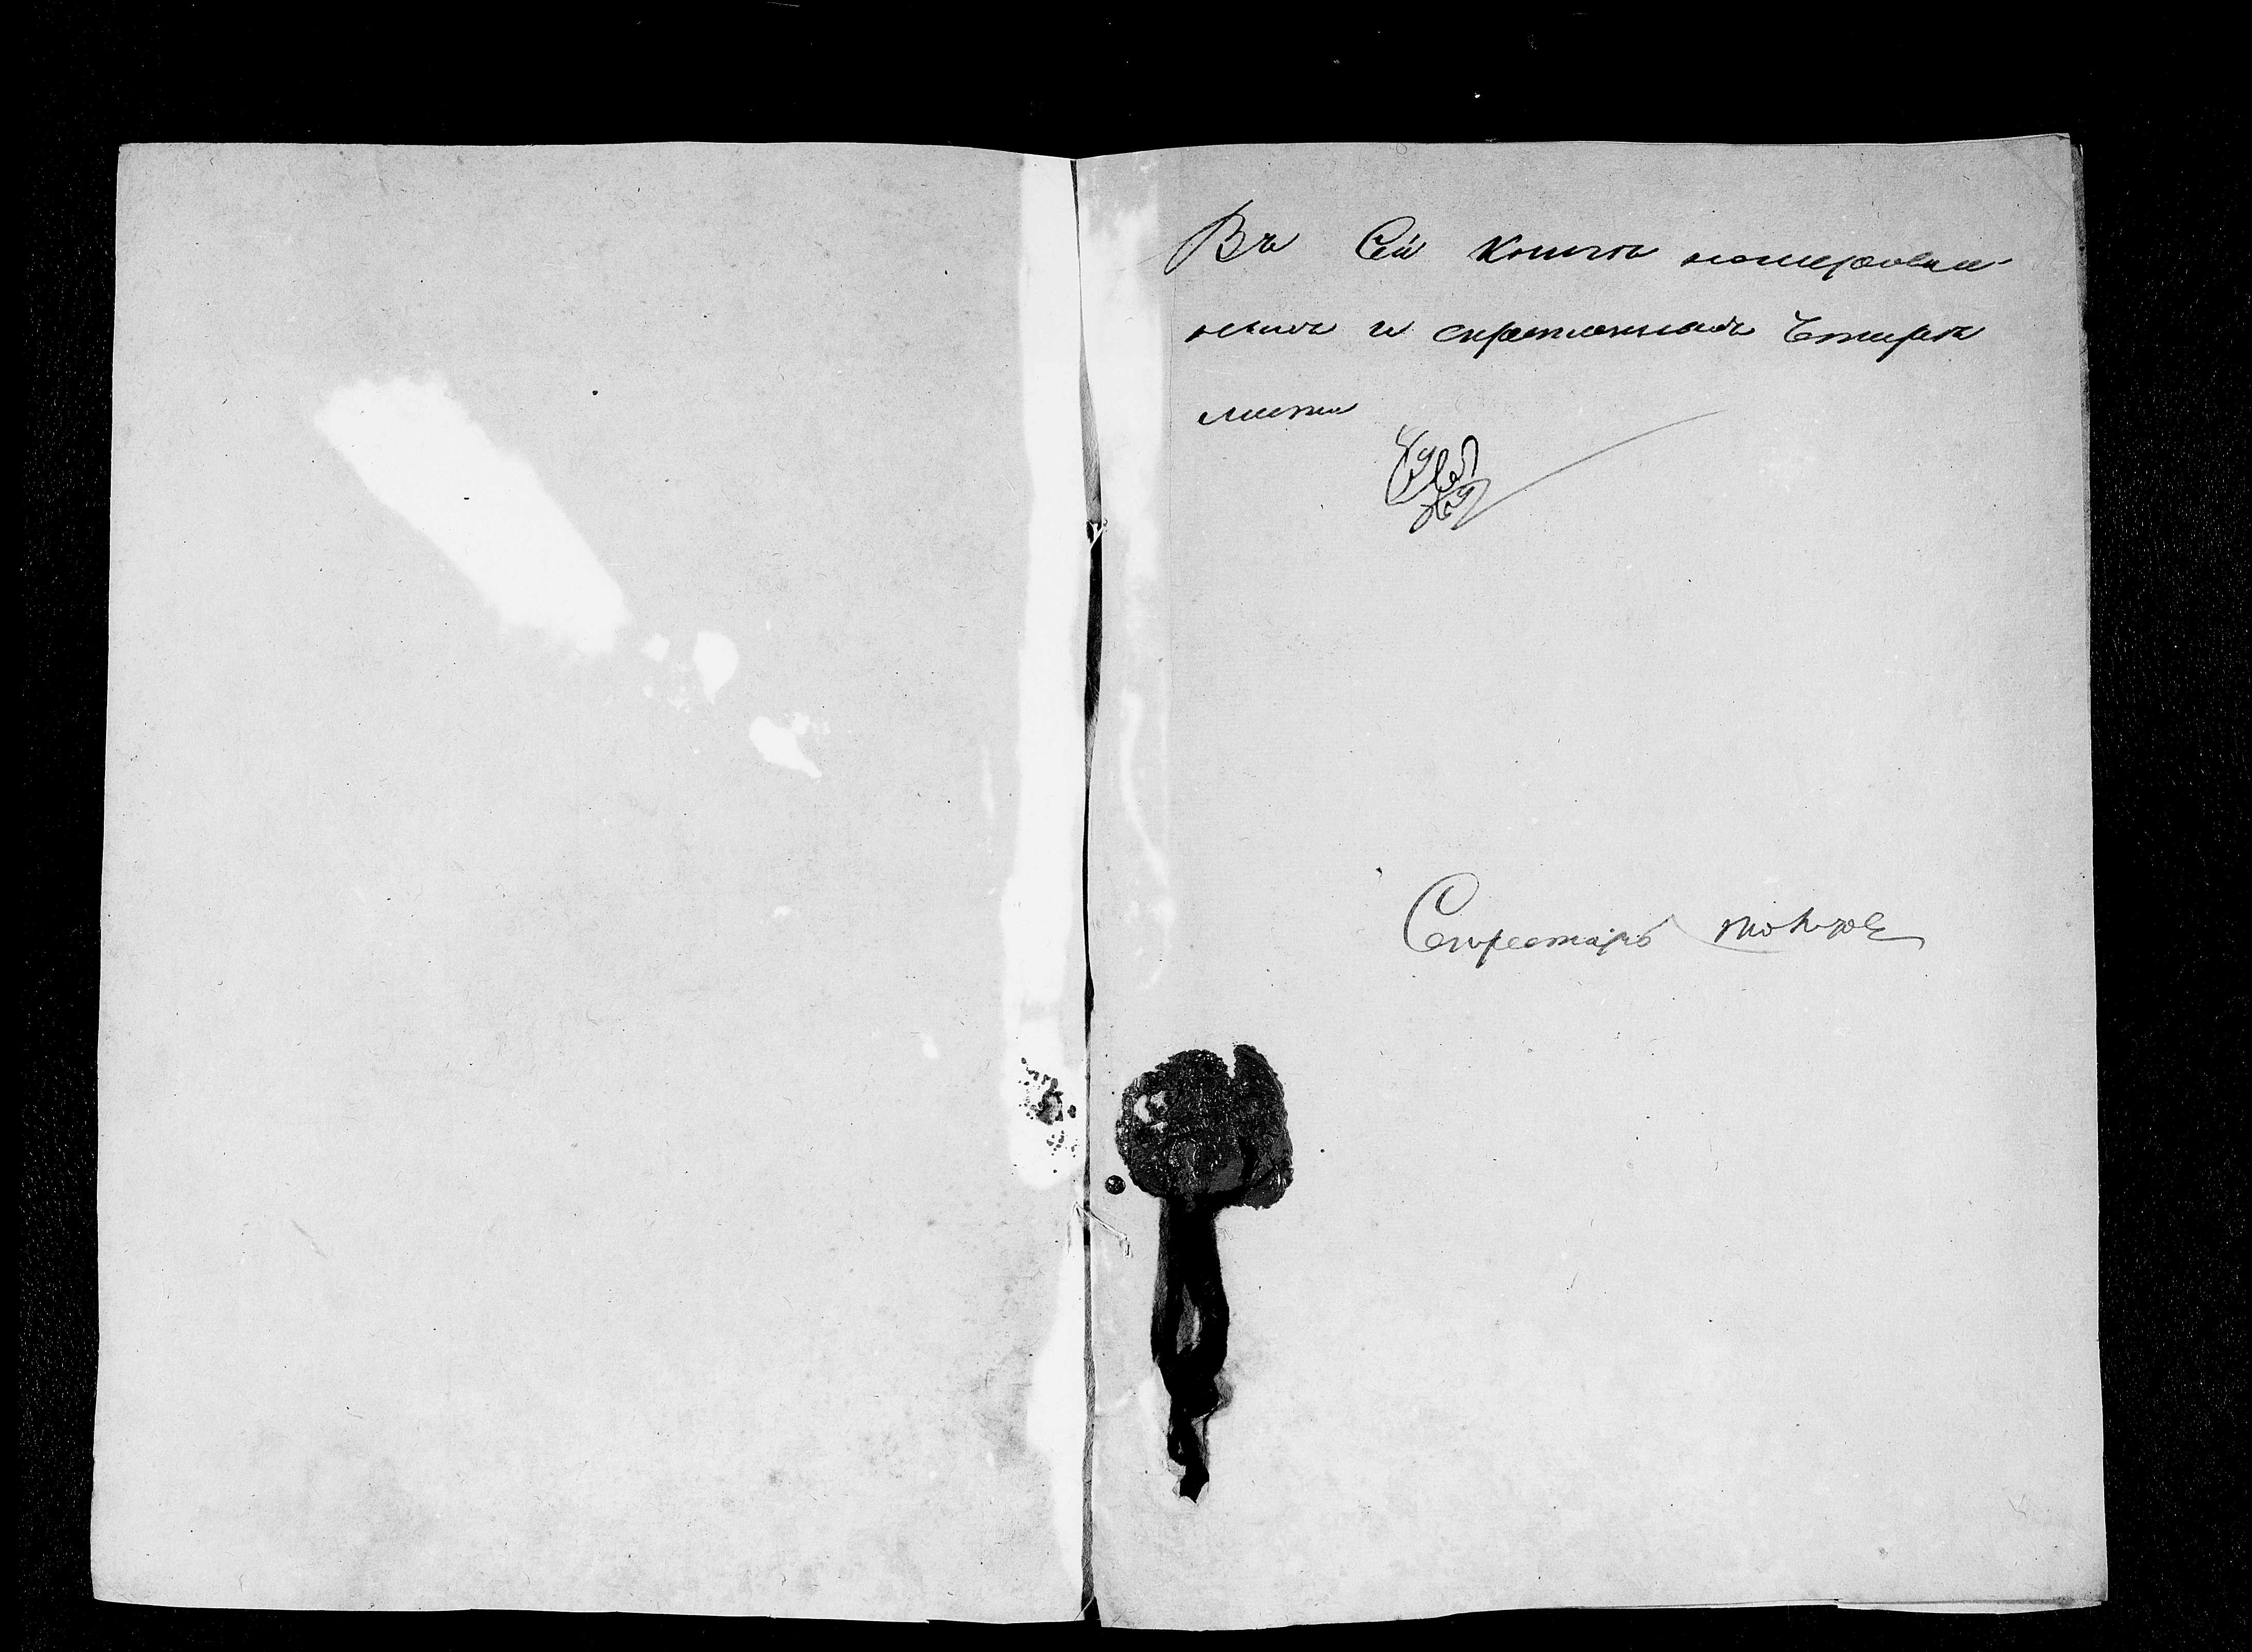 Въ Сей Книгѣ номерован-
ныхъ и скрепленныхъ Чтире
листа
Секретарь